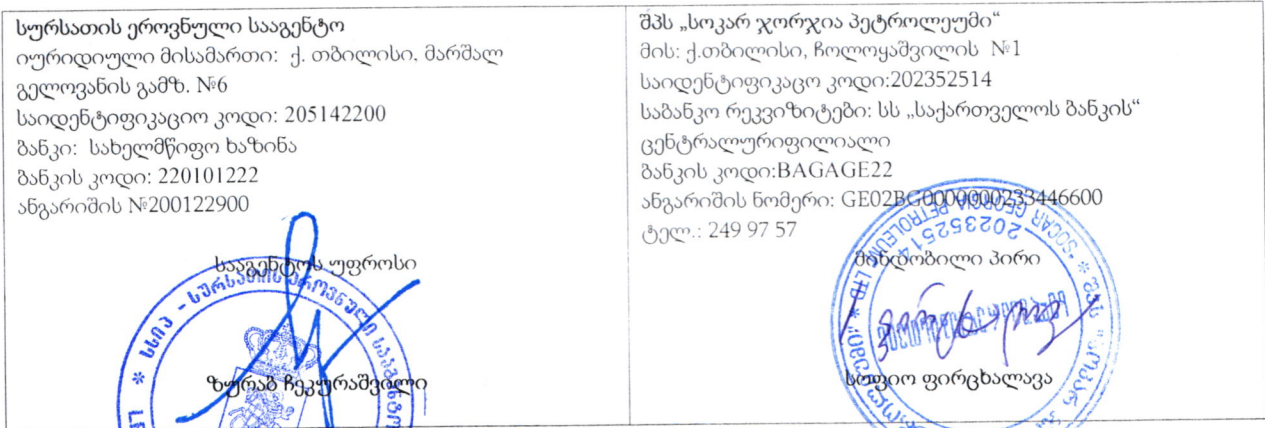 სურსათის ეროვნული სააგენტო
იურიდიული მისამართი: ქ. თბილისი, მარშალ
გელოვანის გამზ. №6
საიდენტიფიკაციო კოდი: 205142200
ბანკი: სახელმწიფო ხაზინა
ბანკის კოდი: 220101222
ანგარიშის №200122900
სააგენტოს უფროსი
სსიპ - სურსათის ეროვნული სააგენტო
ზურაბ ჩეკურაშვილი
შპს „სოკარ ჯორჯია პეტროლეუმი“
მის: ქ.თბილისი, ჩოლოყაშვილის №1
საიდენტიფიკაცო კოდი:202352514
საბანკო რეკვიზიტები: სს „საქართველოს ბანკის“
ცენტრალურიფილიალი
ბანკის კოდი:BAGAGE22
ანგარიშის ნომერი: GE02BG0000000233446600
ტელ.: 249 97 57
მინდობილი პირი
"SOCAR GEORGIA PETROLEUM" LTD
202352514
სოფიო ფირცხალავა